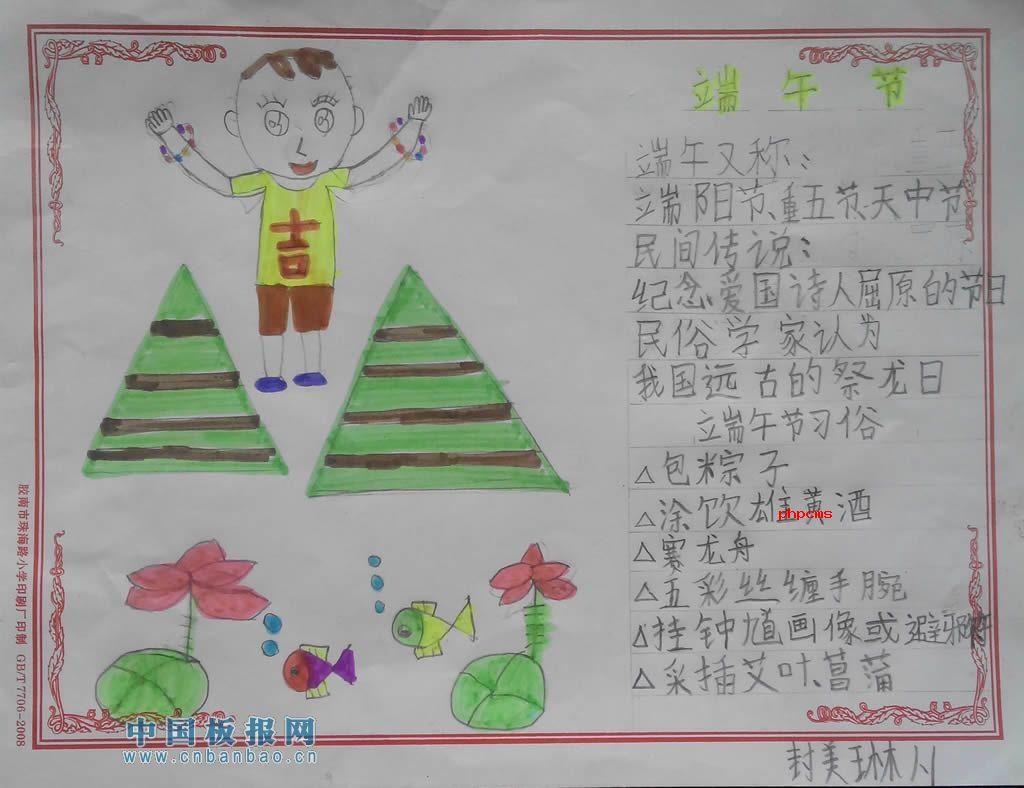 端午节
端午又称：
端阳节、重五节、天中节
民间传说：
纪念爱国诗人屈原的节日
民俗学家认为
我国远古的祭龙日
端午节习俗
△包粽子
△涂饮雄黄酒
phpcms
△赛龙舟
△五彩丝缠手腕
△挂钟馗画像或避邪符
△采插艾叶、菖蒲
吉
胶南市珠海路小学印刷厂印制 GB/T7706-2008
中国板报网
www.cnbanbao.cn
封美琳